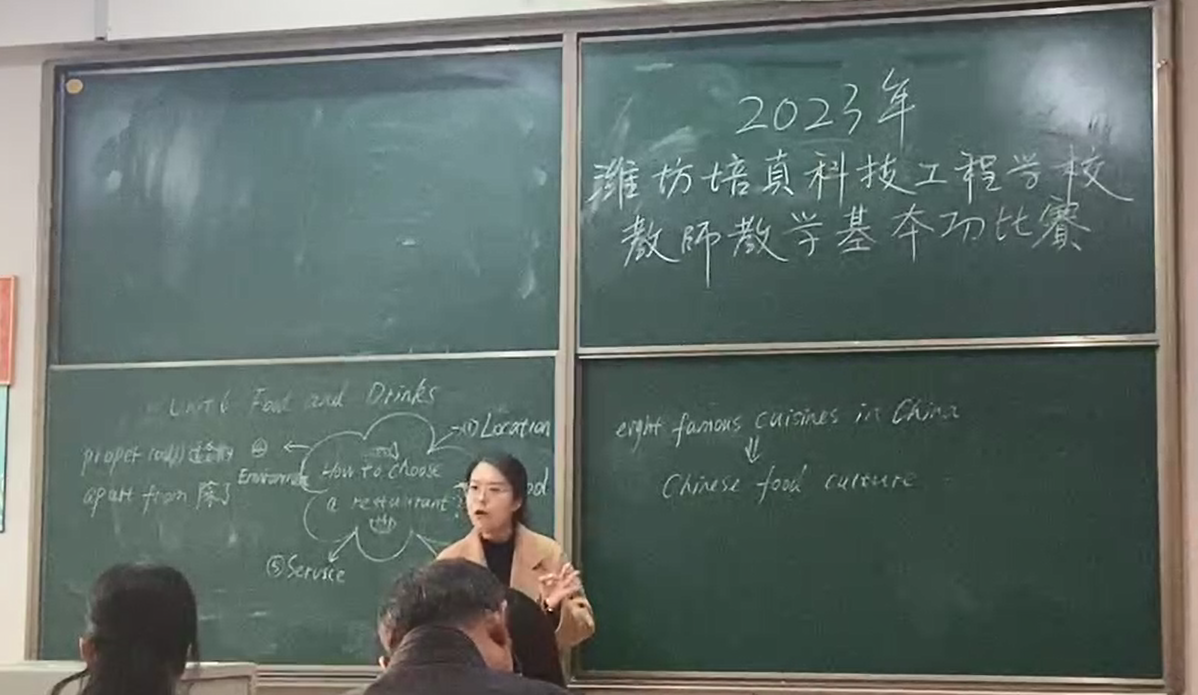 2023年
潍坊培真科技工程学校
教师教学基本功比赛
Unit 6 Food and Drinks
proper (adj) 适合的
apart from 除了
④
Environment
How to choose
a restaurant?
(1) Location
⑤ Service
eight famous cuisines in China
⇓
Chinese food culture